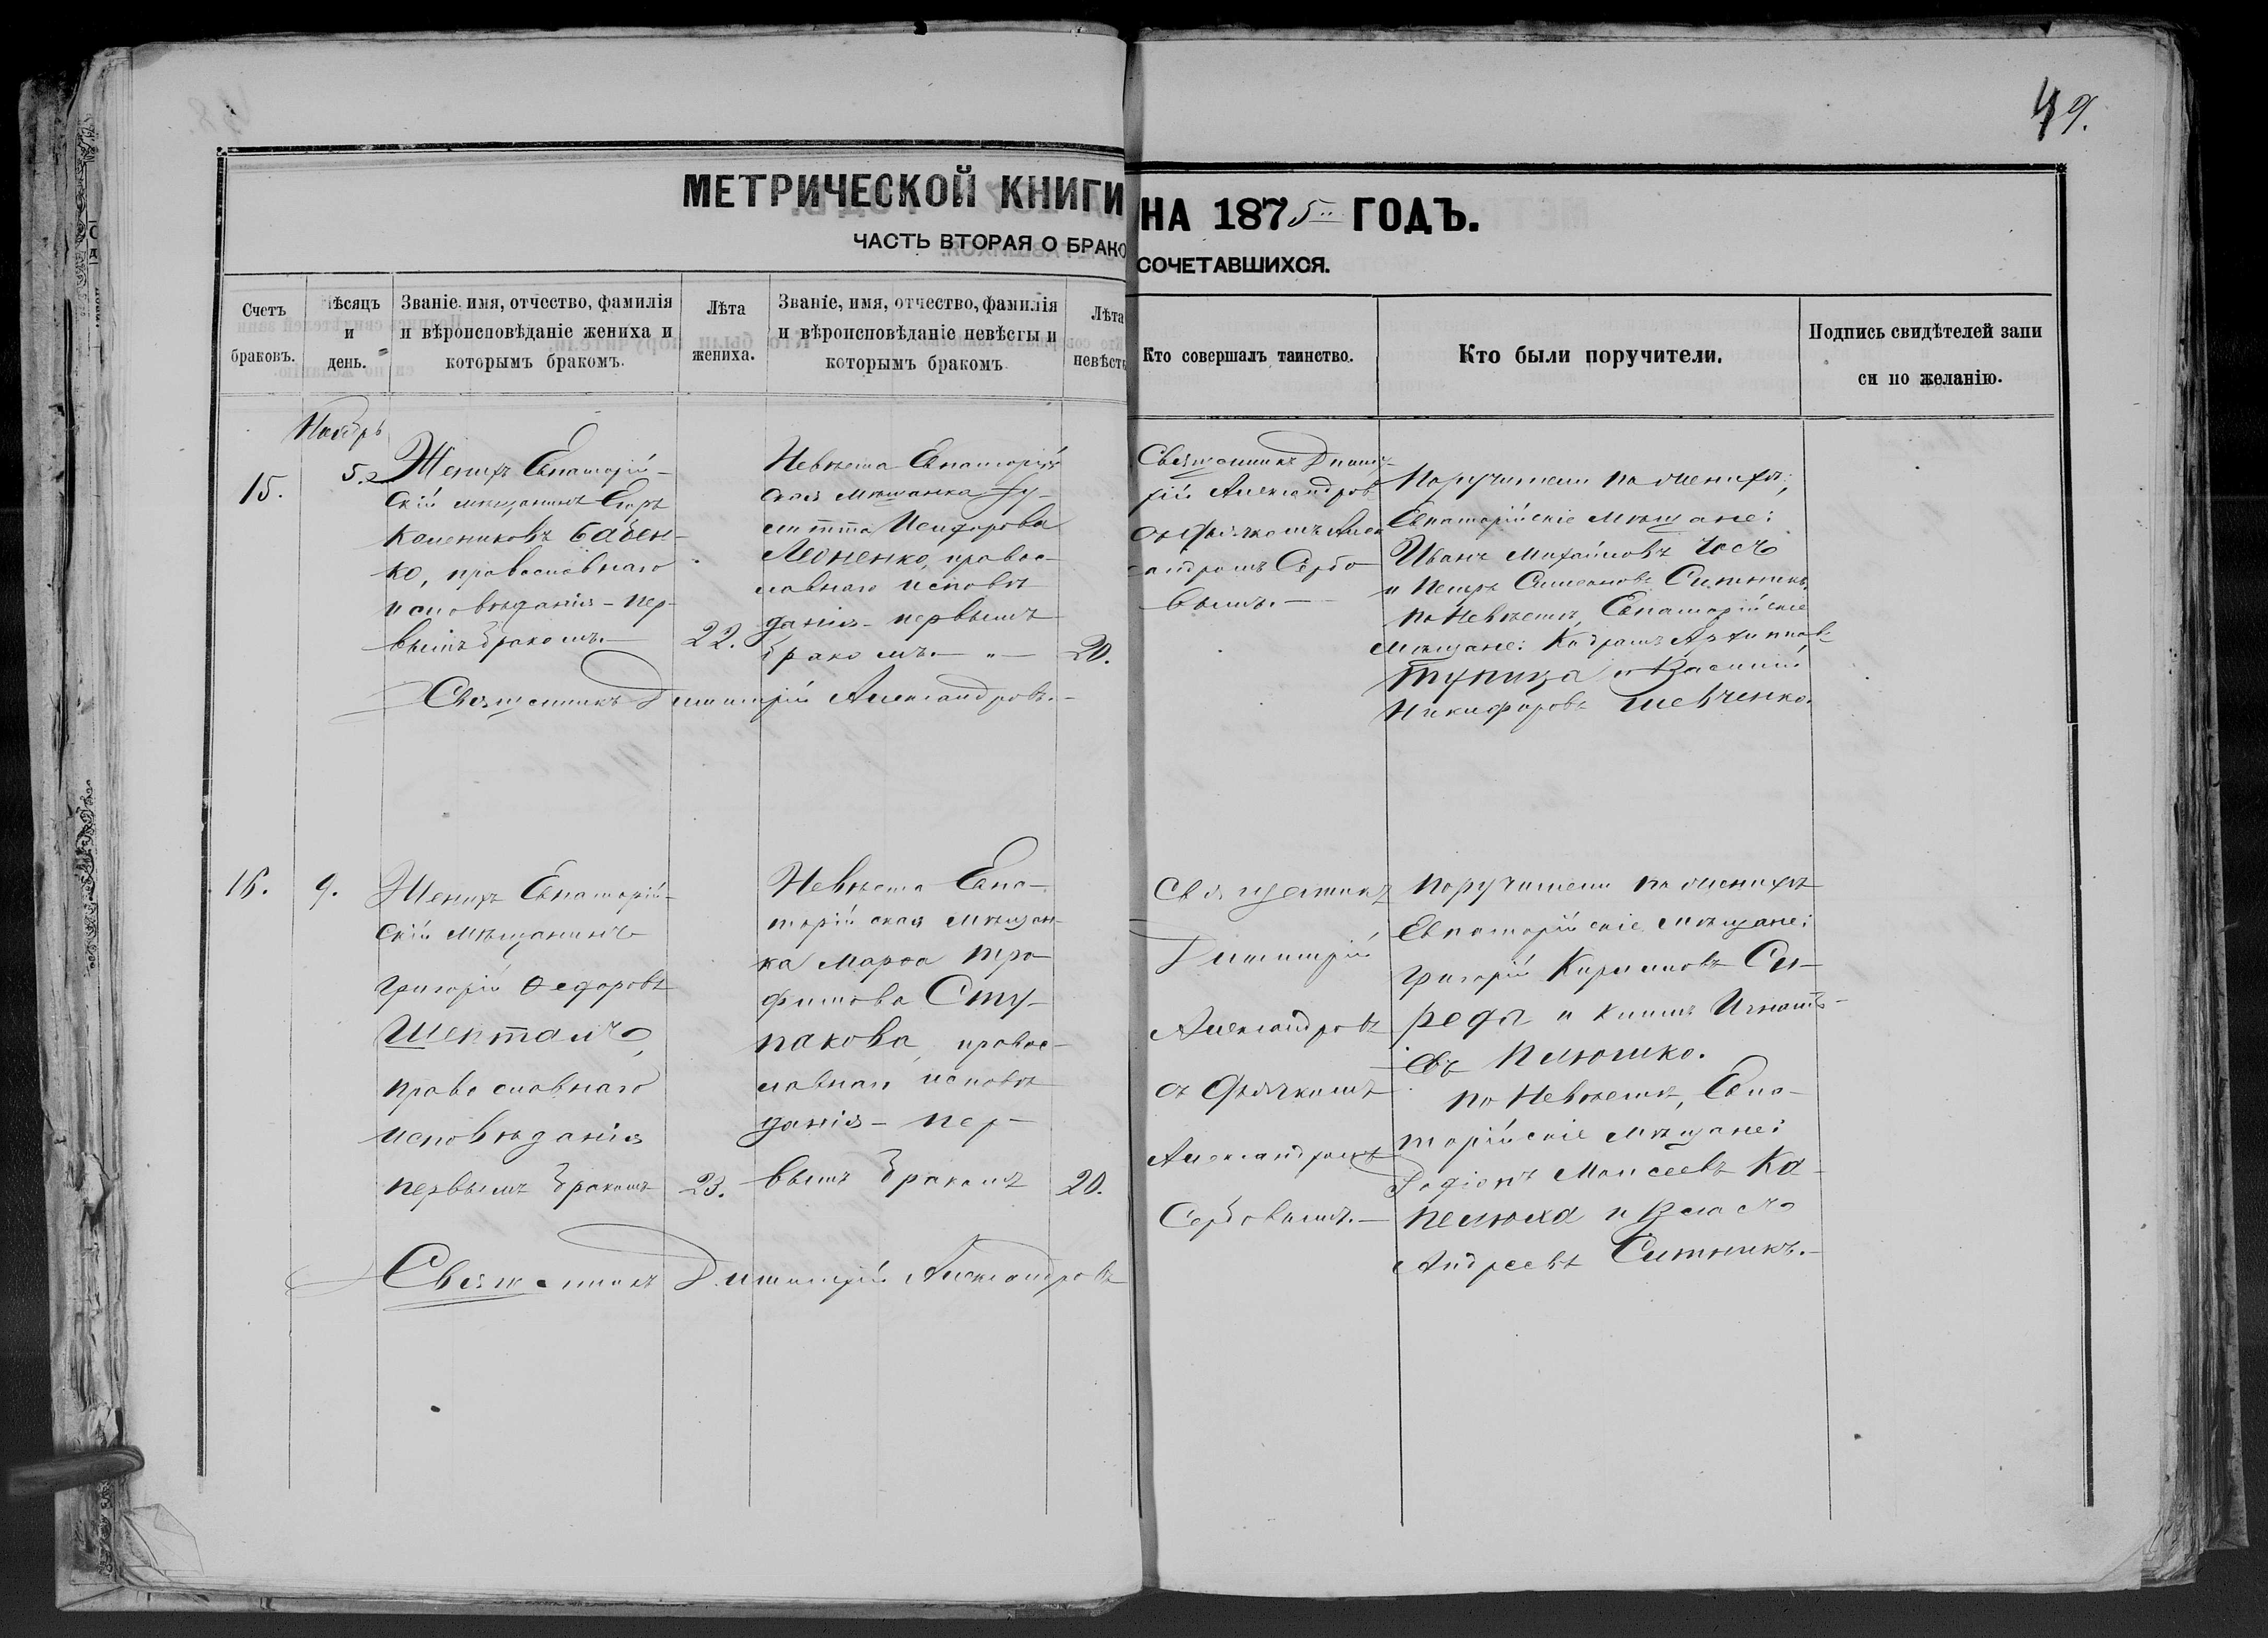 49.
МЕТРИЧЕСКОЙ КНИГИ НА 1875 ГОДЪ.
ЧАСТЬ ВТОРАЯ О БРАКОСОЧЕТАВШИХСЯ.
Счетъ
браковъ.
мѣсяцъ
и
день.
Званіе, имя, отчество, фамилія
и вѣроисповѣданіе жениха и
которымъ бракомъ.
Лѣта
жениха.
Званіе, имя, отчество, фамилія
и вѣроисповѣданіе невѣсты и
которымъ бракомъ
Лѣта
невѣсты
Кто совершалъ таинство.
Кто были поручители.
Подпись свидѣтелей запи
си по желанію.
Ноябрь
15.
5.
Женихъ Евпаторій-
скій мѣщанинъ
Бабен-
ко, православнаго
исповѣданія - пер-
вымъ бракомъ.
22.
Невѣста Евпаторій-
ская мѣщанка
Исидорова
Леоненко, правос-
лавнаго исповѣ
данія - первымъ
бракомъ.
20.
Священникъ Димит-
рій Александровъ
съ Дьячкомъ Алек
сандромъ Сербо
вымъ.
Поручители по женихѣ;
Евпаторійскіе мѣщане:
Иванъ Михайловъ
и Петръ Симеоновъ Ситникъ,
по Невѣстѣ, Евпаторійскіе
мѣщане: Кодратъ Архиповъ
Тупица и Василій
Никифоровъ Шевченко.
Священникъ Димитрій Александровъ.
16.
9.
Женихъ Евпаторій-
скій мѣщанинъ
Григорій Ѳедоровъ
Шепталъ,
православнаго
исповѣданія
первымъ бракомъ
23.
Невѣста Евпа-
торійская мѣщан-
ка Марѳа Тро-
фимова Сту-
пакова, правос-
лавнаго исповѣ
данія - пер-
вымъ бракомъ
20.
Священникъ
Димитрій
Александровъ
съ Дьячкомъ
Александромъ
Сербовымъ.
Поручители по женихѣ
Евпаторійскіе мѣщане:
Григорій Кириловъ Си-
реда и Климъ Игнать-
евъ Плюшко.
по Невѣстѣ, Евпа-
торійскіе мѣщане:
Родіонъ Моисеевъ Ка-
пелюха и Власъ
Андреевъ Ситникъ.
Священникъ Димитрій Александровъ